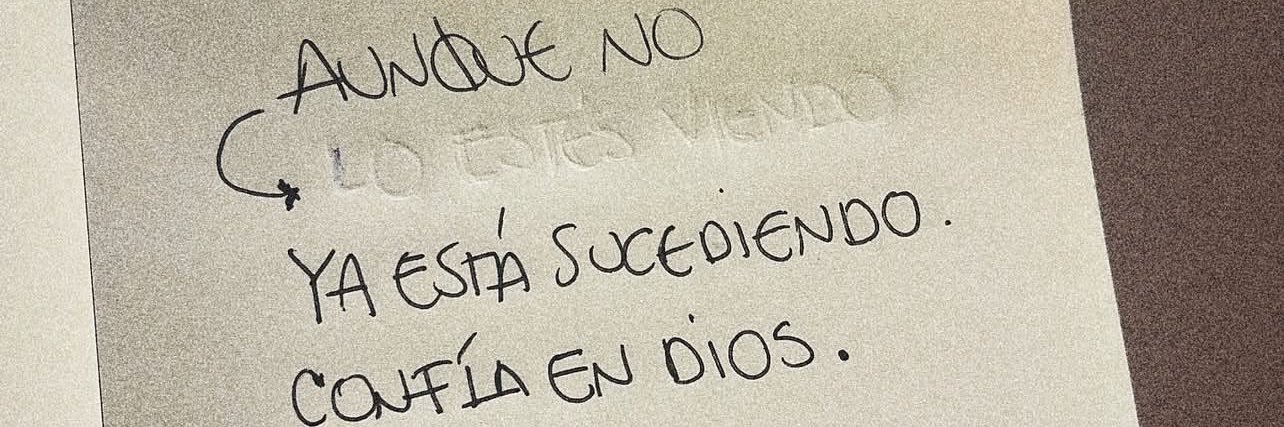 AUNQUE NO
LO ESTÉS VIENDO
YA ESTÁ SUCEDIENDO.
CONFÍA EN DIOS.